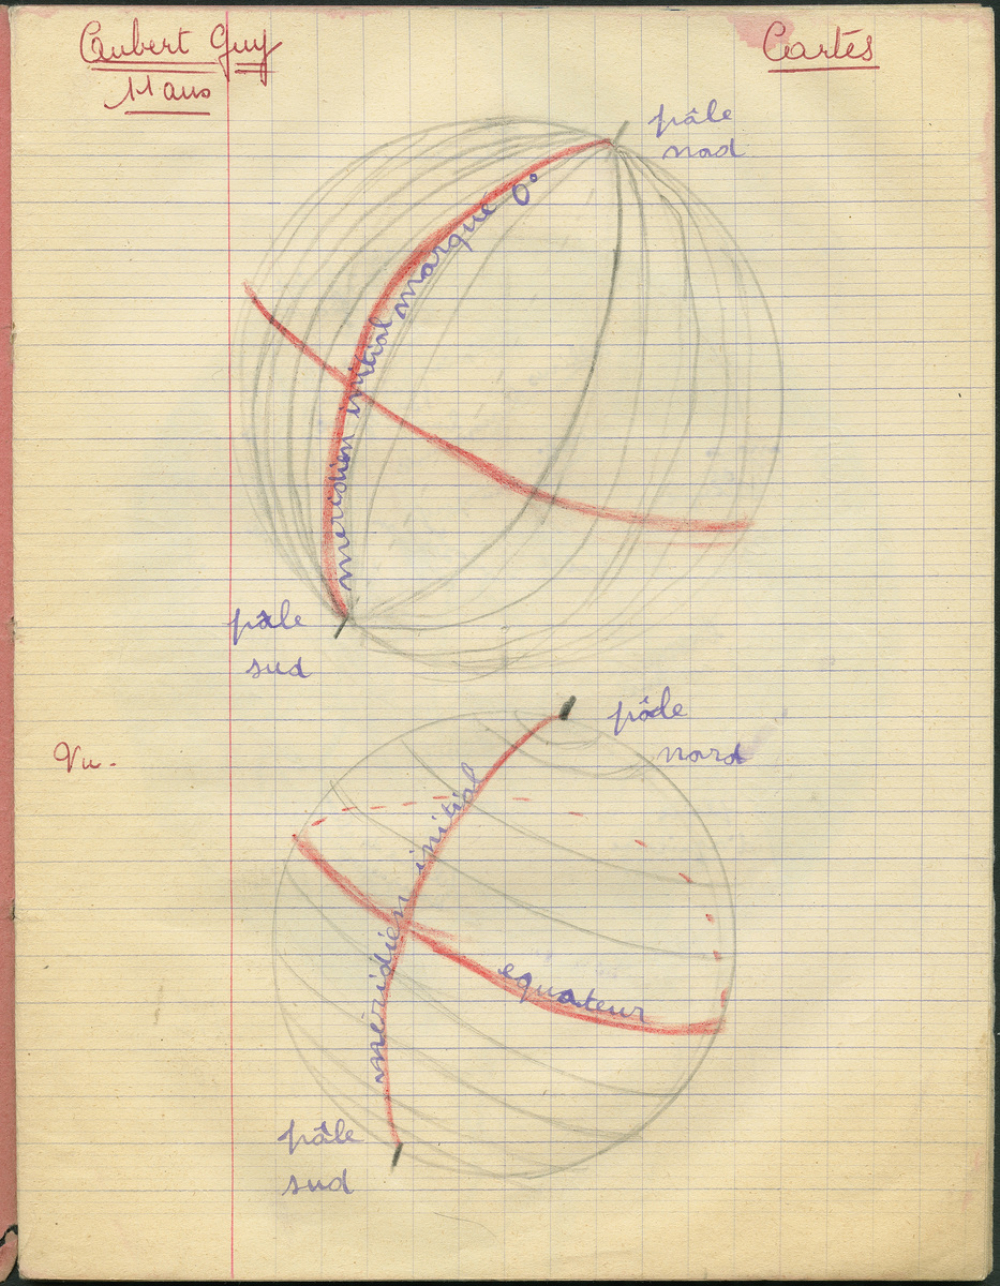 Aubert Guy
11 ans
Cartes
pâle
nod
meridien initial marqué 0°
pâle
sud
Vu.
pôle
nord
meridien initial
equateur
pâle
sud